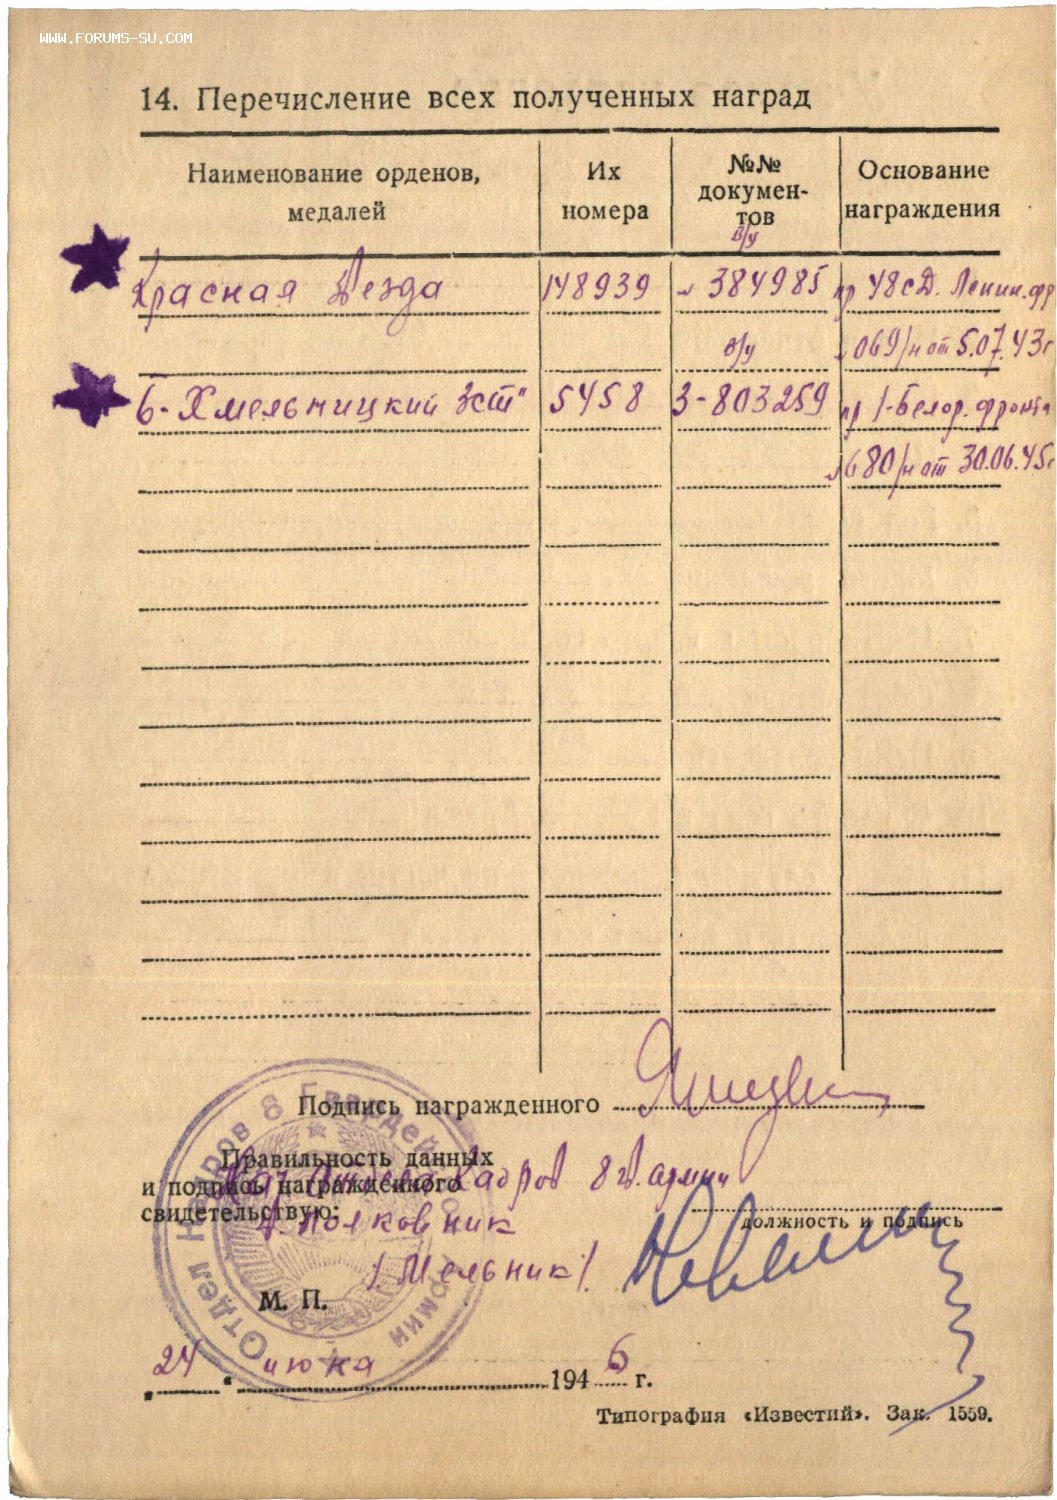 WWW.FORUMS-SU.COM
14. Перечисление всех полученных наград
Наименование орденов, медалей
Их номера
№№ докумен-тов
Основание награждения
в/у
Красная Звезда 148939 № 384985 пр 48сд. Ленин.фр
в/у № 069/н от 5.07.43г
Б-Хмельницкий 3ст" 5458 З-803259 пр 1-Белор. фронта
№680/н от 30.06.45г
Подпись награжденного
Отдел Кадров 8 Гвардейской Армии
Правильность данных
и подпись награжденного
свидетельствую:
Нач. Отдела Кадров 8 Гв. армии
полковник
/Мельник/
должность и подпись
М. П.
„24“ июня 1946 г.
Типография «Известий». Зак. 1559.